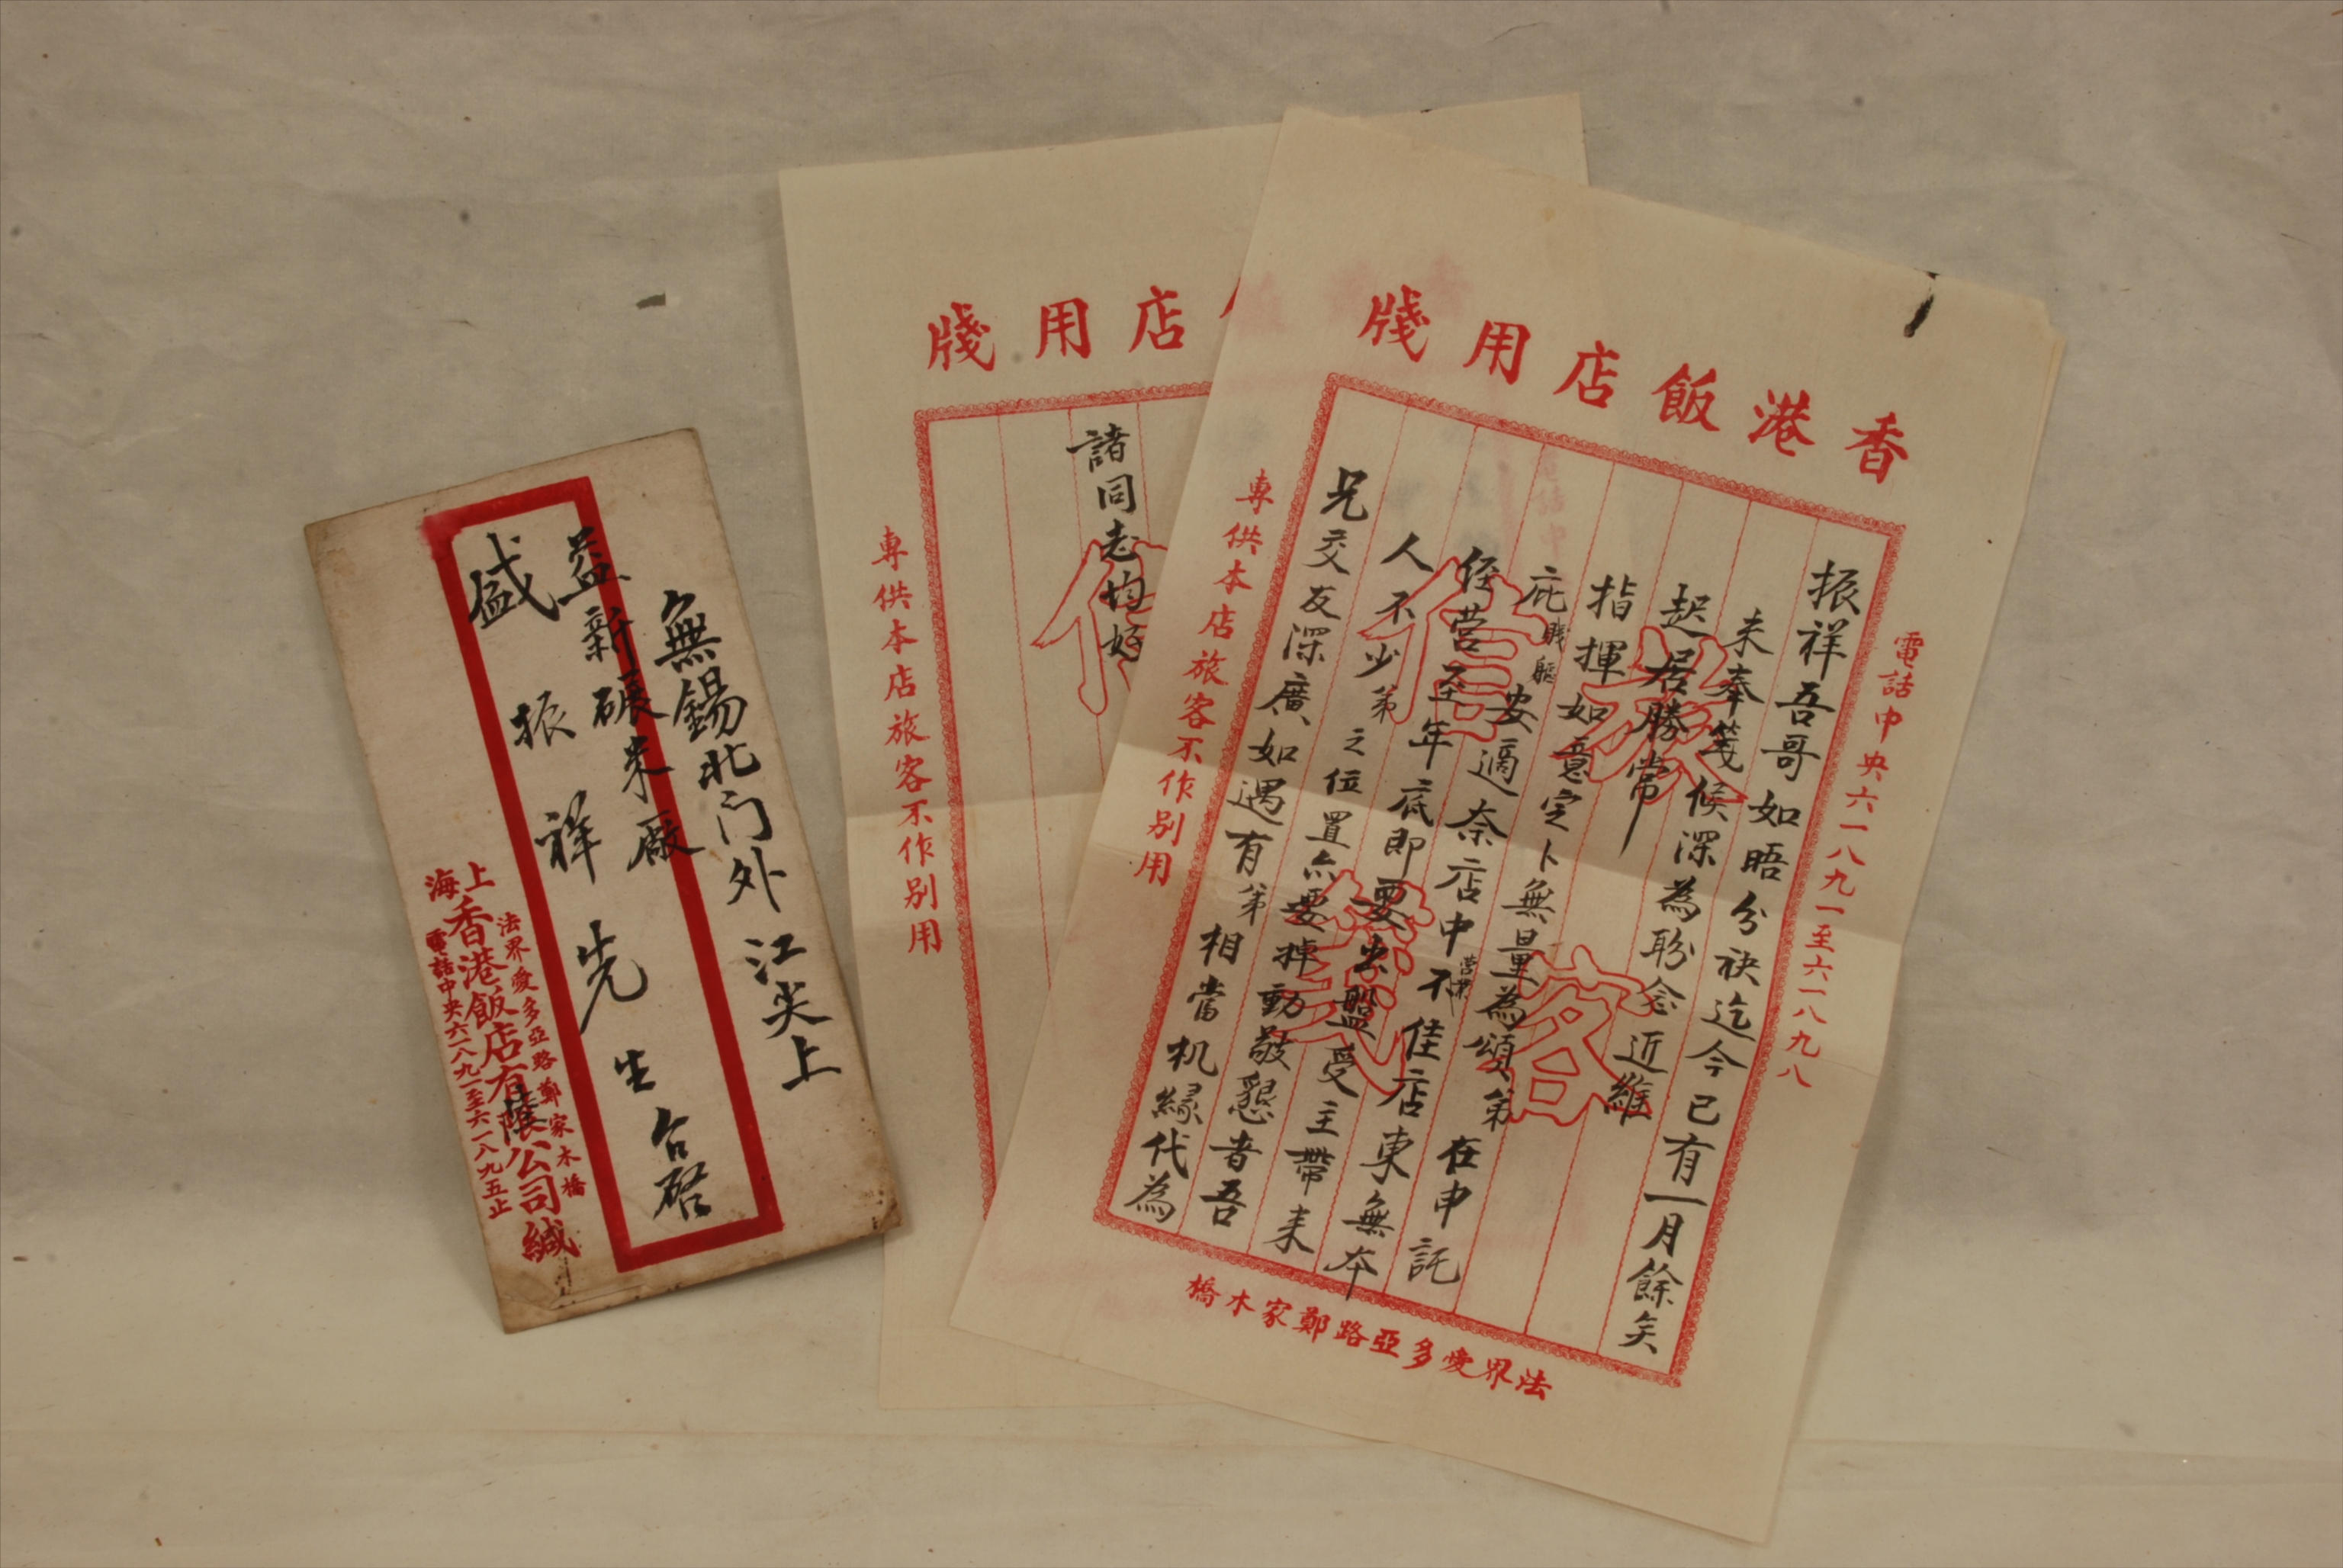 無錫北门外江尖上
益新碾米廠
盛振祥先生台啓
上海
法界愛多亞路鄭家木橋
香港飯店有限公司緘
電話中央六一八九一至六一八九五止
香港飯店用牋
電話中央六一八九一至六一八九八
振祥吾哥如晤分袂迄今已有一月餘矣
未奉箋候深為盼念近維
起居勝常
指揮如意定卜無量為頌弟在申託
庇賤軀安適奈店中營業不佳店東無本
經營至年底即要出盤受主帶来
人不少弟之位置亦要掉動敬懇者吾
兄交友深廣如遇有弟相當机緣代為
旅客信箋
專供本店旅客不作別用
法界愛多亞路鄭家木橋
店用牋
諸同志均好
信
專供本店旅客不作別用